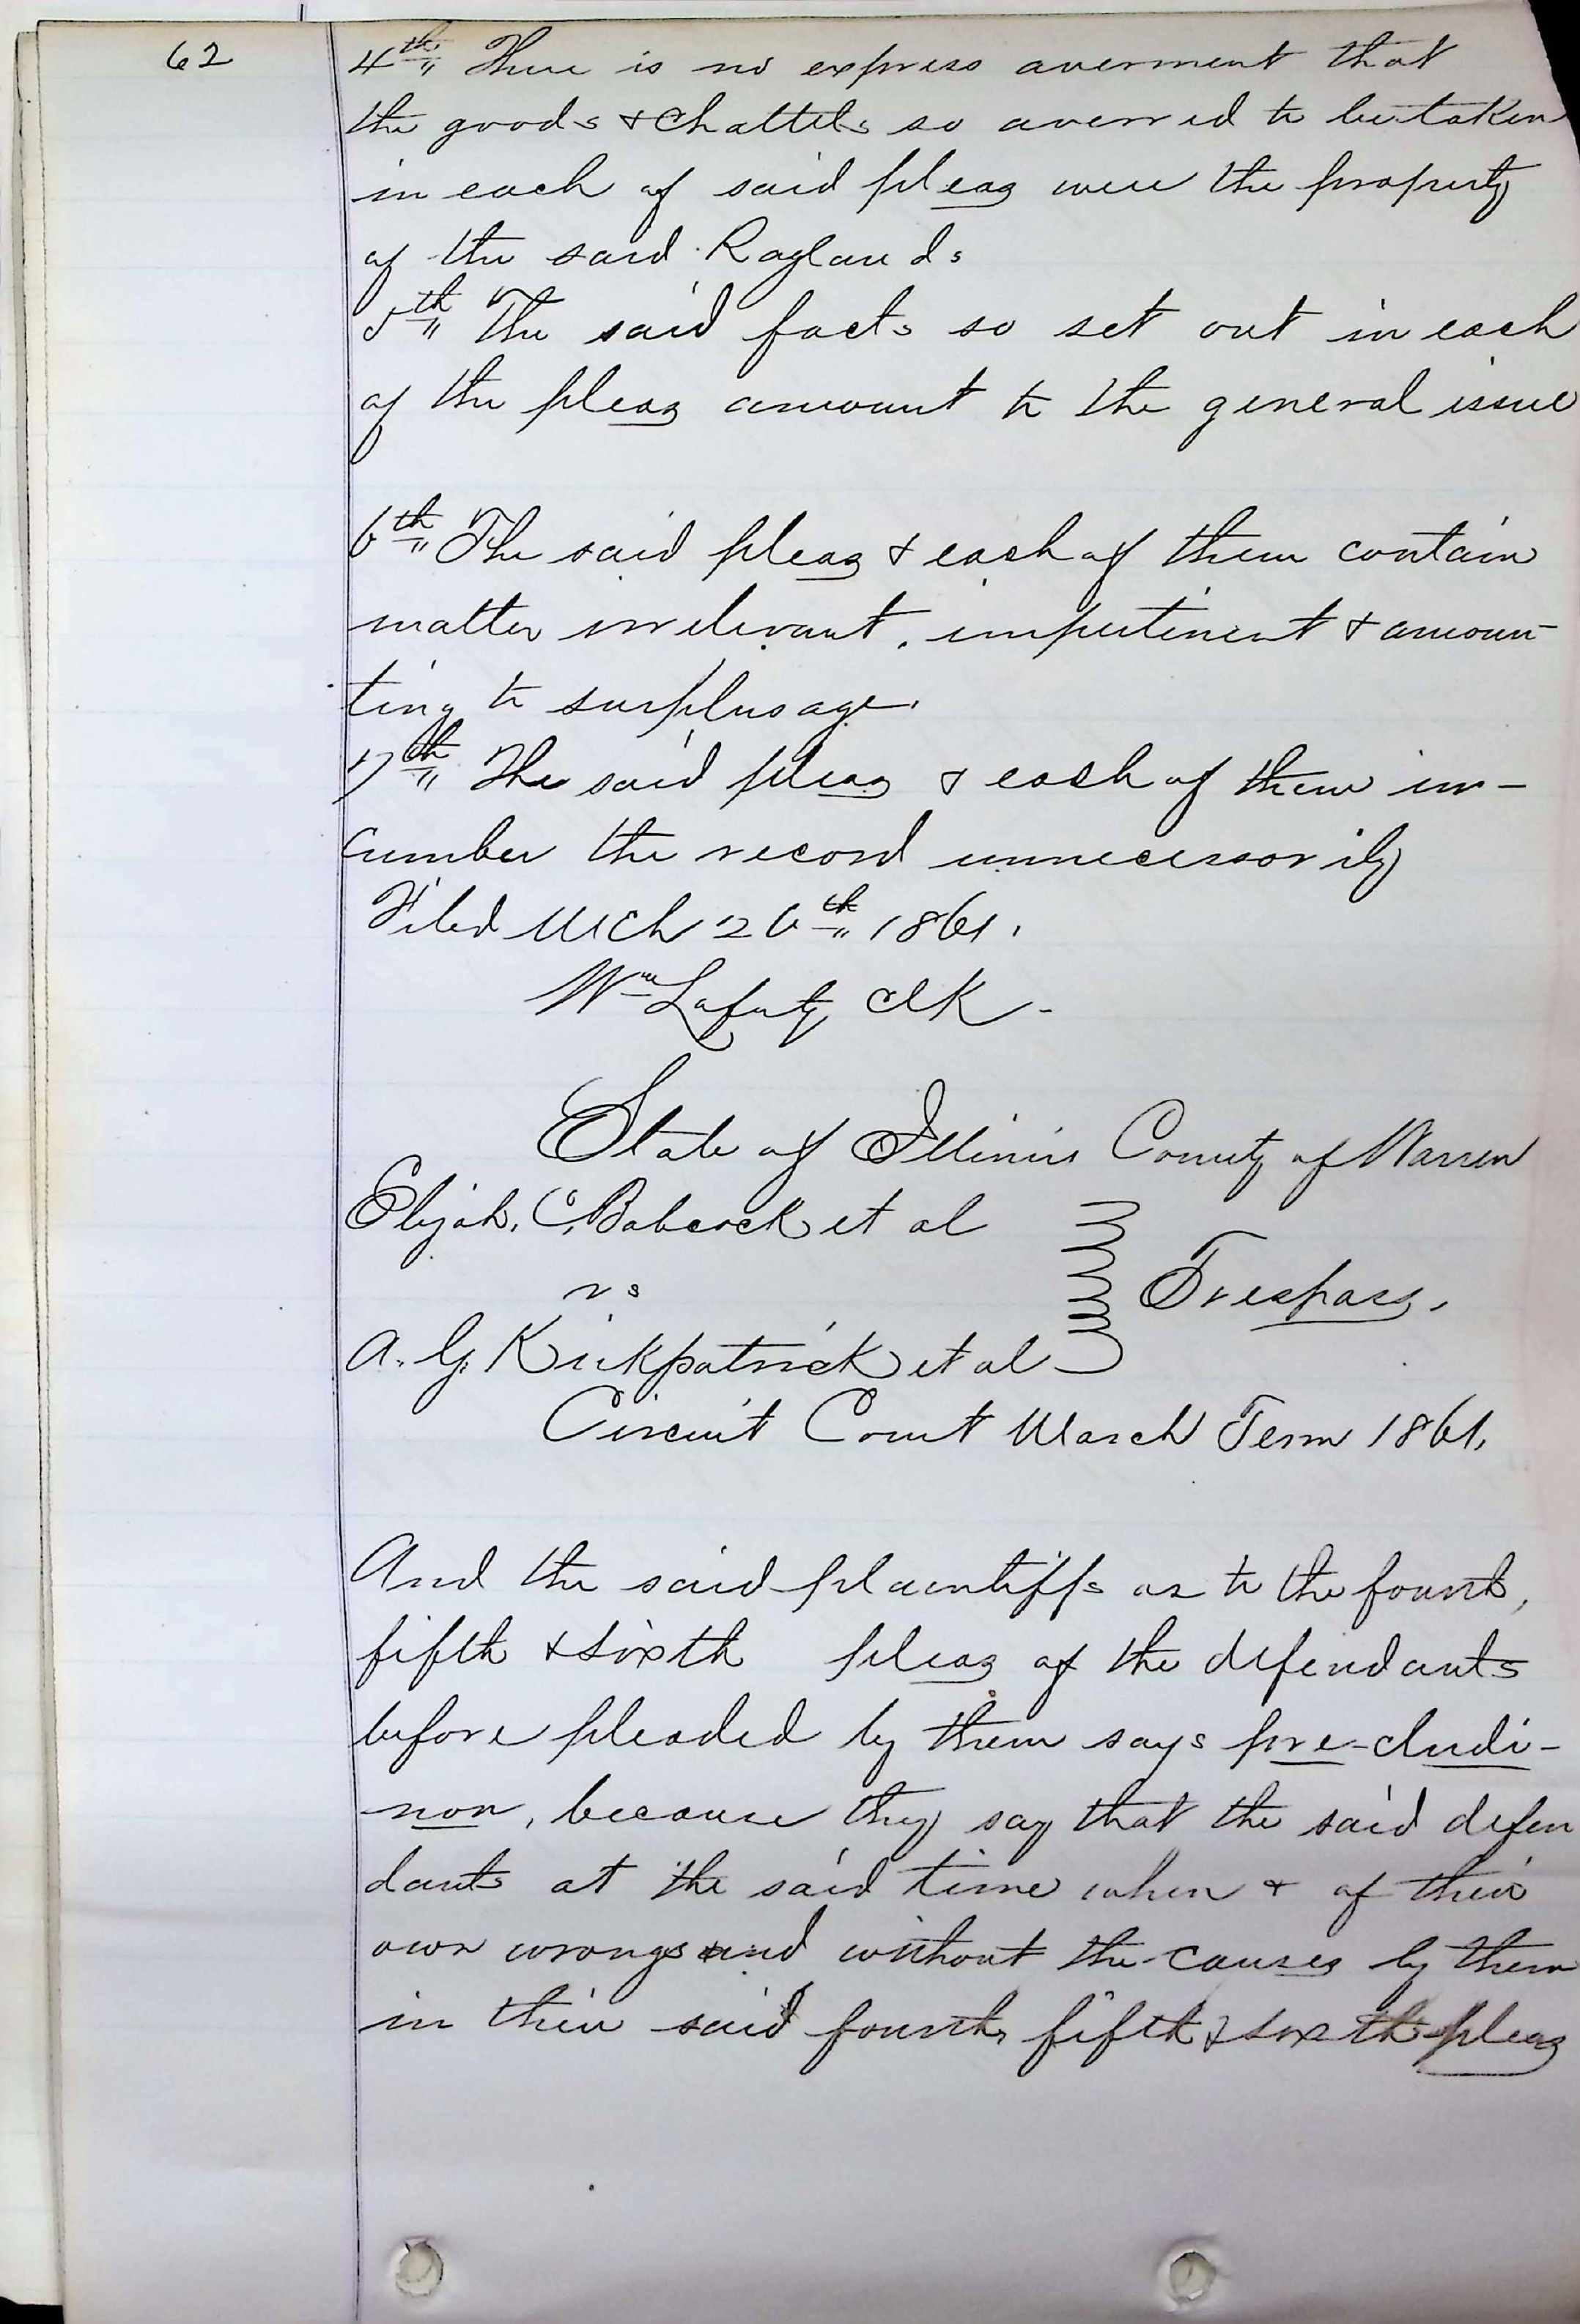 62
4th There is no express averment that
the goods & Chattels so averred to be taken
in each of said pleas were the property
of the said Raglands
5th The said facts so set out in each
of the pleas amount to the general issue
6th The said pleas & each of them contain
matter irrelevant, impertinent & amoun-
ting to surplusage.
7th The said pleas & each of them in-
cumber the record unnecessarily
Filed Mch 26th 1861.
Wm Lafferty Clk.
State of Illinois County of Warren
Elijah. C. Babcock et al
vs
Trespass.
A. G. Kirkpatrick et al
Circuit Court March Term 1861.
And the said plaintiffs as to the fourth,
fifth & sixth pleas of the defendants
before pleaded by them says pre-cludi-
non, because they say that the said defen
dants at the said time when & of their
own wrongs and without the causes by them
in their said fourth, fifth & sixth pleas